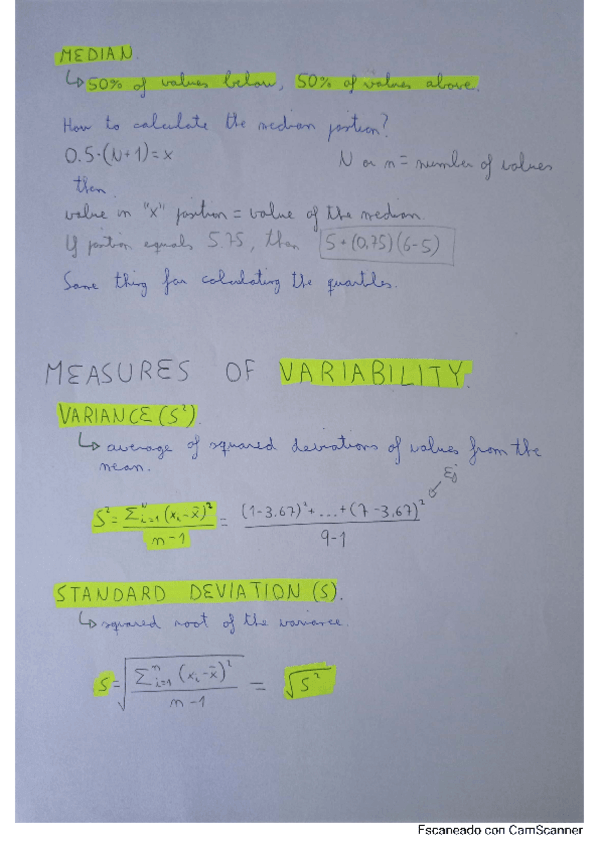 MEDIAN.
↳ 50% of values below, 50% of values above.
How to calculate the median position?
0.5·(N+1)=x N or n = number of values
then.
value in "x" position = value of the median.
If position equals 5.75, then 5+(0.75)(6-5)
Same thing for calculating the quartiles.
MEASURES OF VARIABILITY.
VARIANCE (S²).
↳ average of squared deviations of values from the
mean.
Ej
S² = Σᴺᵢ₌₁ (xᵢ-x̄)² / n-1 = (1-3.67)²+...+(7-3.67)² / 9-1
STANDARD DEVIATION (S).
↳ squared root of the variance.
S = √(Σⁿᵢ₌₁ (xᵢ-x̄)² / n-1) = √S²
Escaneado con CamScanner